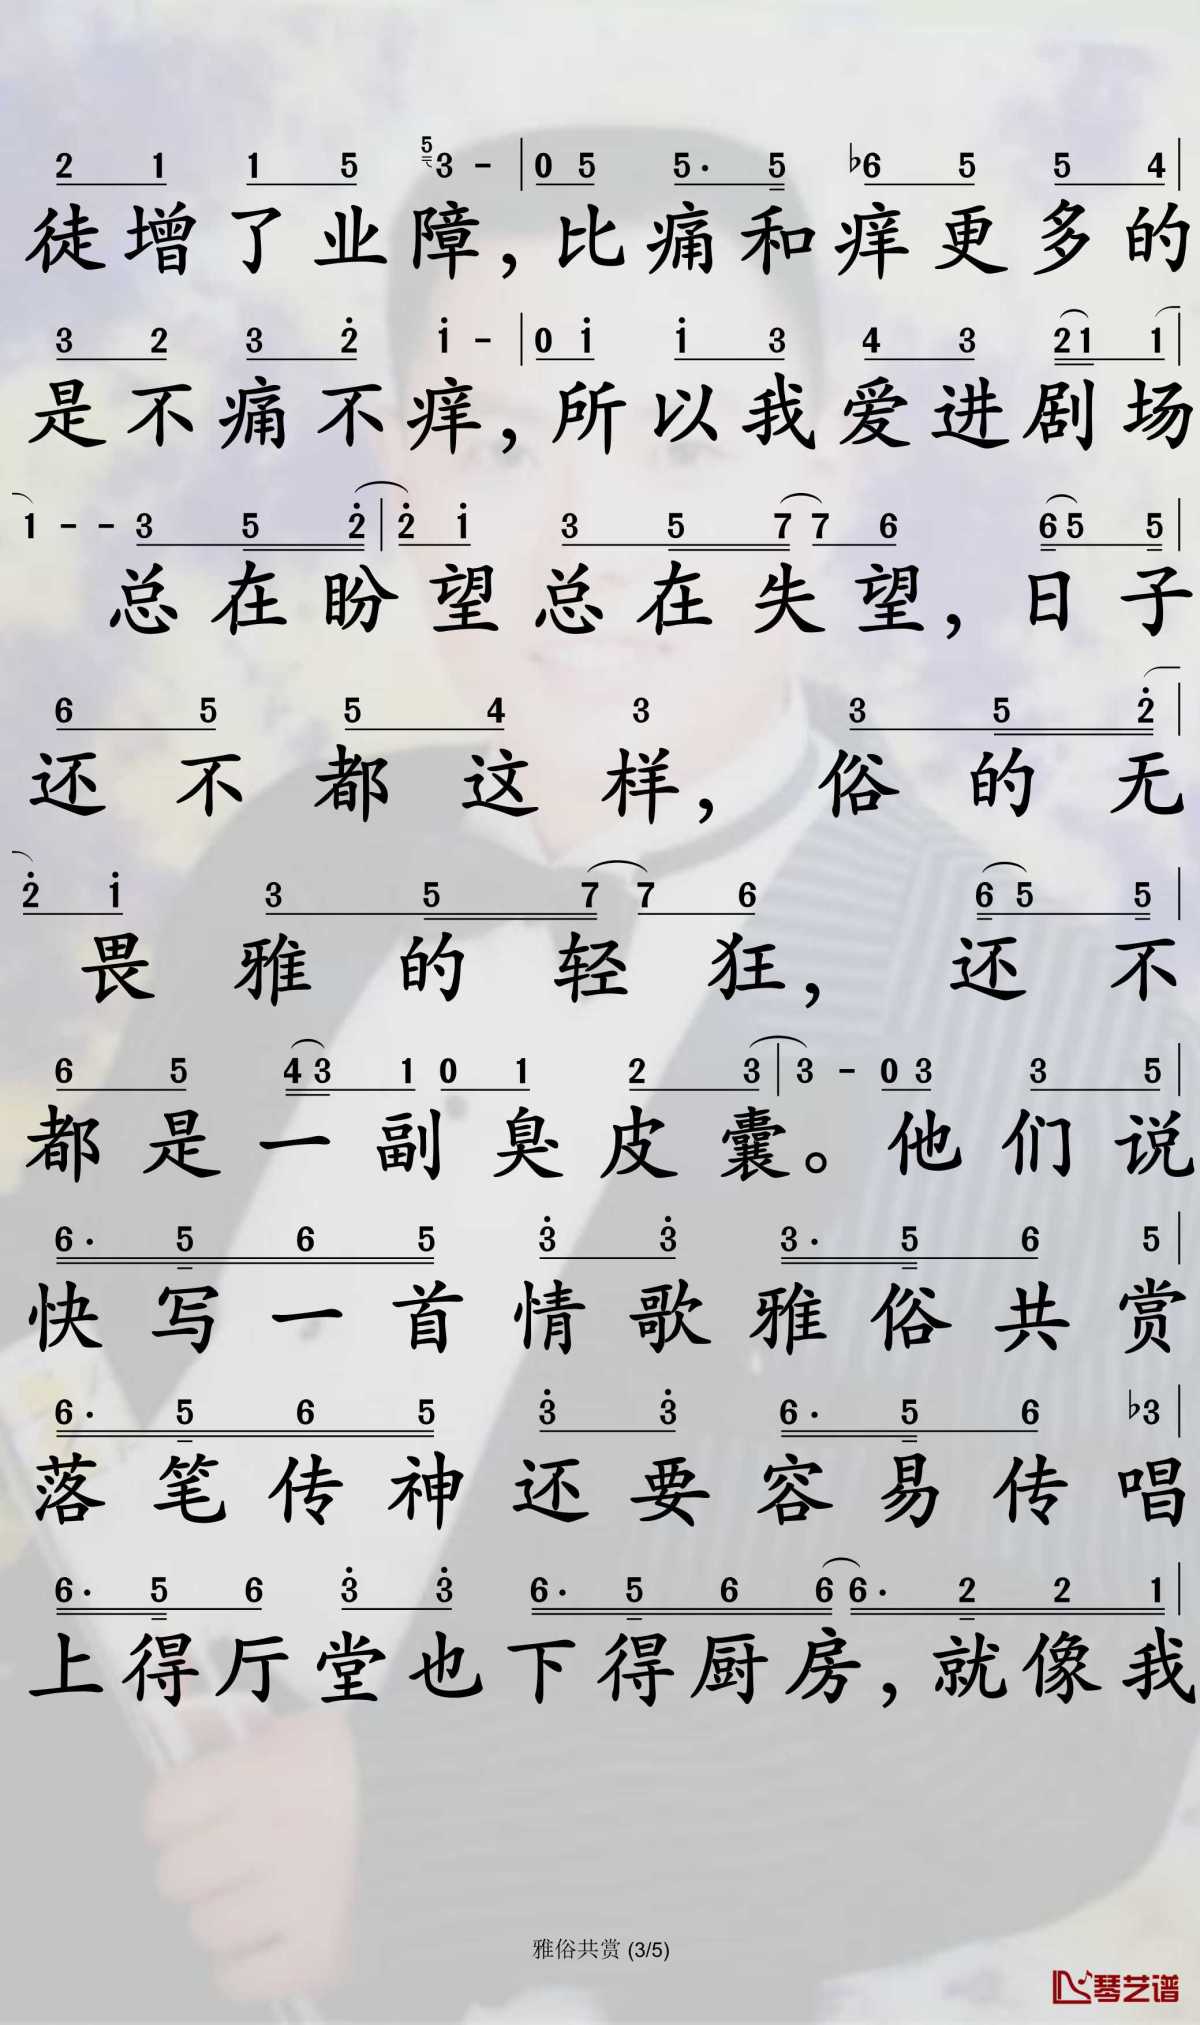 2 1 1 5 5 3 - | 0 5 5· 5 ♭6 5 5 4 |
徒增了业障，比痛和痒更多的
3 2 3 2 1 - | 0 1 1 3 4 3 2 1 1 |
是不痛不痒，所以我爱进剧场
1 - - 3 5 2 | 2 1 3 5 7 7 6 6 5 5 |
总在盼望总在失望，日子
6 5 5 4 3 3 5 2 |
还不都这样，俗的无
2 1 3 5 7 7 6 6 5 5 |
畏雅的轻狂，还不
6 5 4 3 1 0 1 2 3 | 3 - 0 3 3 5 |
都是一副臭皮囊。他们说
6· 5 6 5 3 3 3· 5 6 5 |
快写一首情歌雅俗共赏
6· 5 6 5 3 3 6· 5 6 ♭3 |
落笔传神还要容易传唱
6· 5 6 3 3 6· 5 6 6 6· 2 2 1 |
上得厅堂也下得厨房，就像我
雅俗共赏 (3/5)
琴艺谱